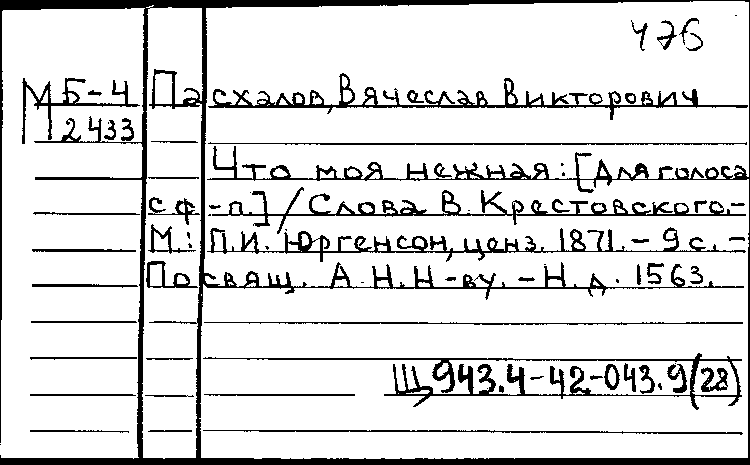 476
М Б-4 Пасхалов, Вячеслав Викторович
2433
Что моя нежная: [Для голоса
с ф-п.] / Слова В. Крестовского.-
М.: П.И. Юргенсон, ценз. 1871. - 9 с. -
Посвящ. А.Н.Н-ву. - Н.д. 1563.
Щ943.4-42-043.9(28)